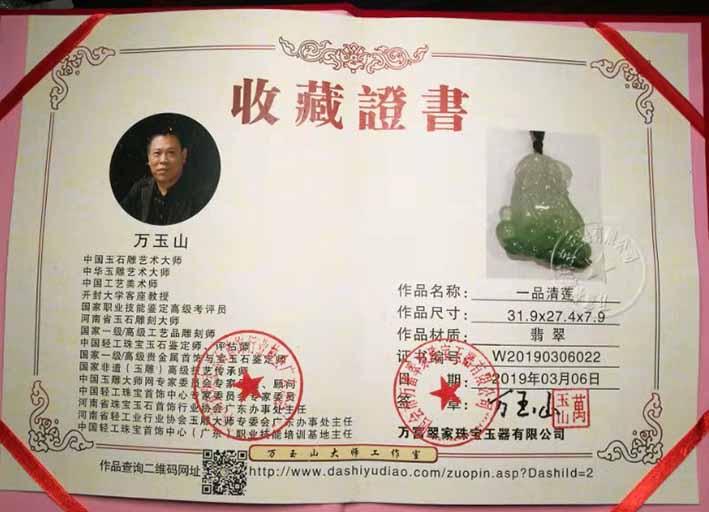 收藏證書
万玉山
中国玉石雕艺术大师
中华玉雕艺术大师
中国工艺美术师
开封大学客座教授
国家职业技能鉴定高级考评员
河南省玉石雕刻大师
国家一级/高级工艺品雕刻师
中国轻工珠宝玉石鉴定师、评估师
国家一级/高级贵金属首饰与宝玉石鉴定师
国家非遗（玉雕）高级技艺传承师
中国玉雕大师网专家委员会专家 顾问
中国轻工珠宝首饰中心专家委员会专家委员
河南省珠宝玉石首饰行业协会广东办事处主任
河南省轻工业行业协会玉雕大师专委会广东办事处主任
中国轻工珠宝首饰中心（广东）职业技能培训基地主任
作品名称：一品清莲
作品尺寸：31.9x27.4x7.9
作品材质：翡翠
证书编号：W20190306022
日期：2019年03月06日
签章：万玉山
萬玉山
万富翠家珠宝玉器有限公司
万玉山大师工作室
作品查询二维码网址
http://www.dashiyudiao.com/zuopin.asp?DashiId=2